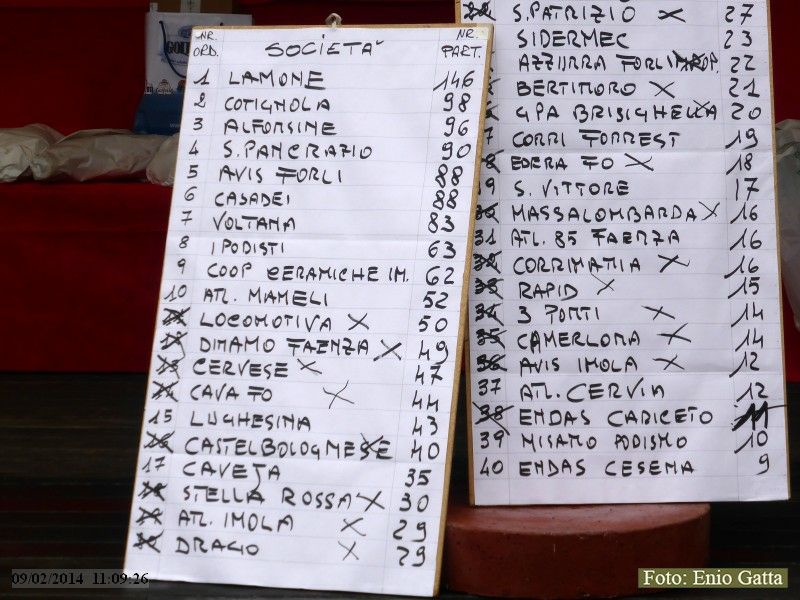 NR. ORD. SOCIETA' NR. PART.
1 LAMONE 146
2 COTIGNOLA 98
3 ALFONSINE 96
4 S.PANCRAZIO 90
5 AVIS FORLI 88
6 CASADEI 88
7 VOLTANA 83
8 I PODISTI 63
9 COOP CERAMICHE IM. 62
10 ATL. MAMELI 52
LOCOMOTIVA X 50
DINAMO FAENZA X 49
13 CERVESE X 47
CAVA FO X 44
15 LUGHESINA 43
CASTELBOLOGNESE 40
17 CAVEJA 35
STELLA ROSSA X 30
ATL. IMOLA X 29
DRAGO X 29
S.PATRIZIO X 27
SIDERMEC 23
AZZURRA FORLIMPOP. 22
BERTINORO X 21
GPA BRISIGHELLA 20
7 CORRI FORREST 19
EDERA FO X 18
9 S. VITTORE 17
MASSALOMBARDA X 16
31 ATL. 85 FAENZA 16
CORRIMANIA X 16
33 RAPID X 15
34 3 PONTI X 14
35 CAMERLONA X 14
36 AVIS IMOLA X 12
37 ATL. CERVIA 12
38 ENDAS CARICETO 11
39 MISANO PODISMO 10
40 ENDAS CESENA 9
09/02/2014 11:09:26
Foto: Enio Gatta